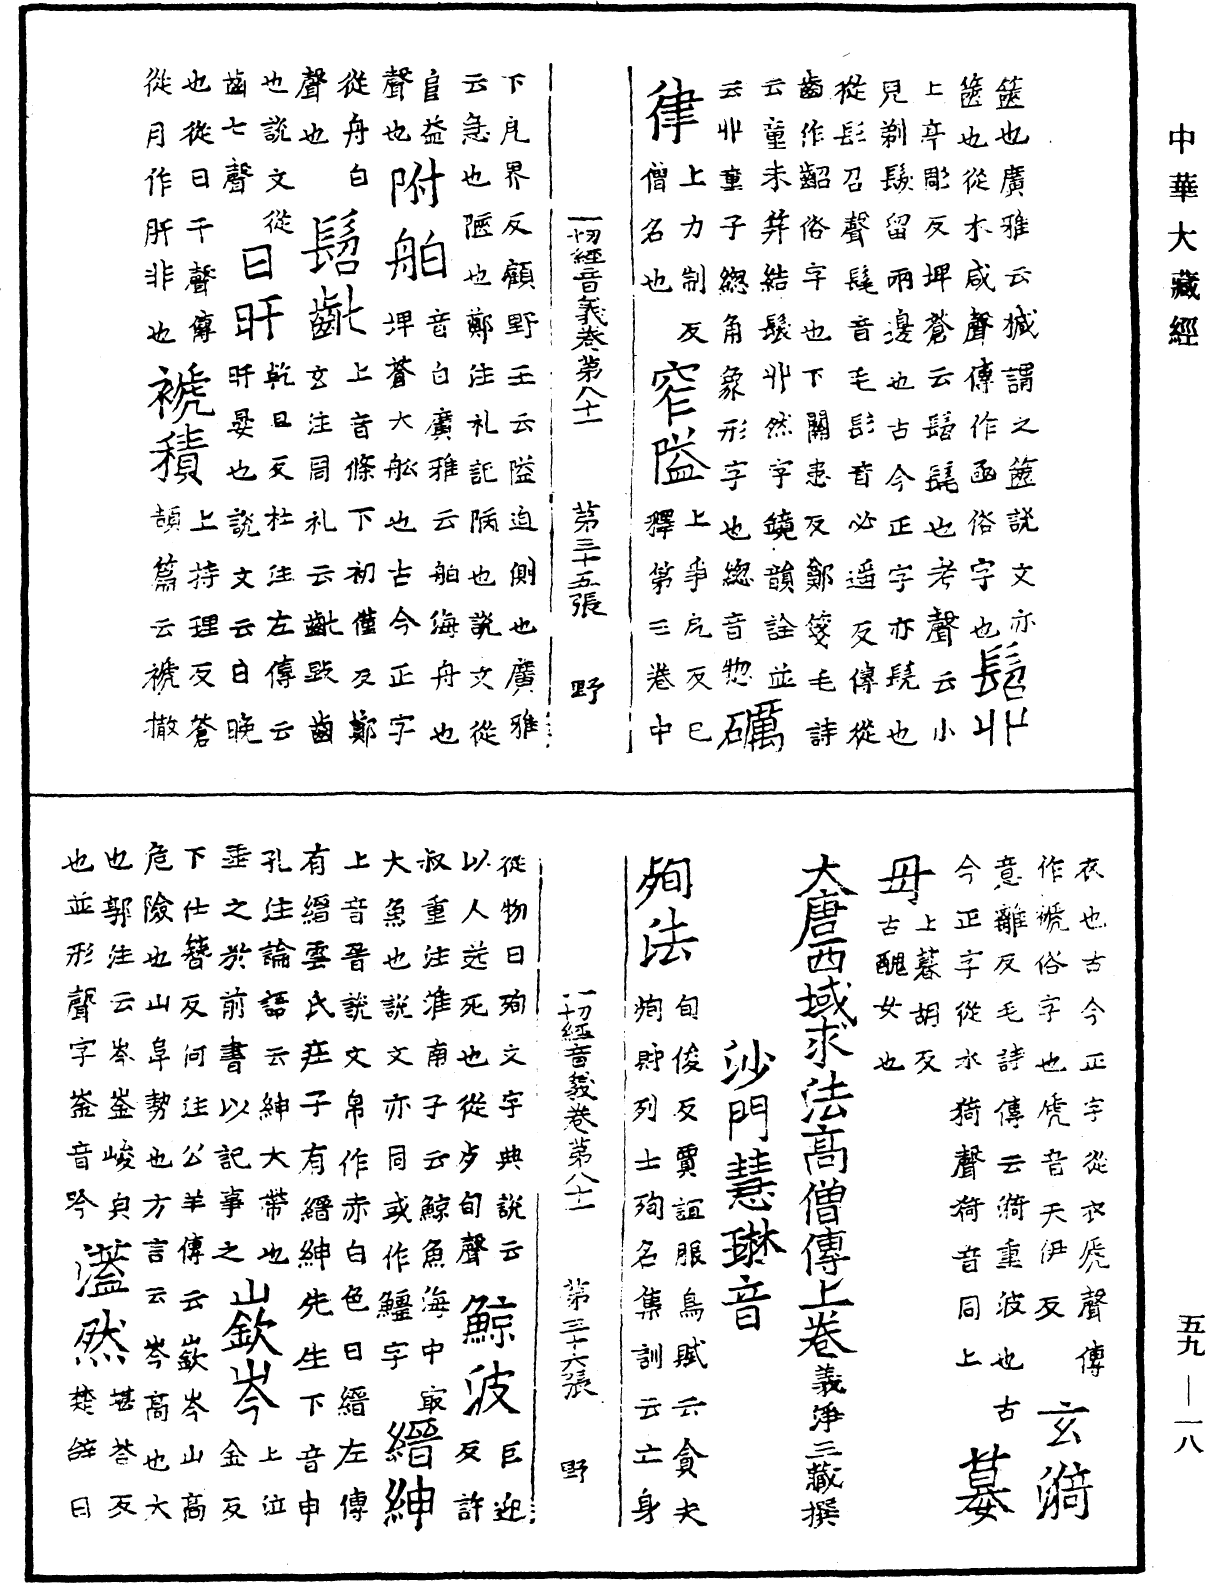 中華大藏經
篋也廣雅云椷謂之篋說文亦
篋也從木咸聲傳作函俗字也髫丱
上亭彫反埤蒼云髫髦也考聲云小
兒剃髮留兩邊也古今正字亦髡也
從髟召聲髦音毛髟音必遥反傳從
齒作齠俗字也下關患反鄭箋毛詩
云童未笄結髮丱然字鏡韻詮並
云丱童子緫角象形字也緫音惣礪
律上力制反
僧名也
窄隘上爭戹反已
釋第三卷中
一切經音義卷第八十一 第三十五張 野
下戹界反顧野王云隘迫側也廣雅
云急也陋也鄭注礼記陿也說文從
𨸏益
聲也附舶音白廣雅云舶海舟也
埤蒼大舩也古今正字
從舟白
聲也髫齔上音條下初僅反鄭
玄注周礼云齔毀齒
也說文從
齒七聲日旰乾旦反杜注左傳云
旰旰晏也說文云日晚
也從日干聲傳
從月作肝非也褫積上持理反蒼
頡篇云褫撤
衣也古今正字從衣虒聲傳
作褫俗字也虒音天伊反玄漪
意離反毛詩傳云漪重波也古
今正字從水猗聲猗音同上嫫
母上暮胡反
古醜女也
大唐西域求法高僧傳上卷義淨三藏撰
沙門慧琳音
殉法旬俊反賈誼服鳥賦云貪夫
殉財列士殉名集訓云亡身
一切經音義卷第八十一 第三十六張 野
從物曰殉文字典說云
以人送死也從歹旬聲鯨波巨迎
反許
叔重注淮南子云鯨魚海中㝡
大魚也說文亦同或作鱷字縉紳
上音晉說文帛作赤白色曰縉左傳
有縉雲氏莊子有縉紳先生下音申
孔注論語云紳大帶也
垂之於前書以記事之嶔岑上泣
金反
下仕簪反何注公羊傳云嶔岑山高
危險也山阜勢也方言云岑高也大
也郭注云岑崟峻皃
也並形聲字崟音吟濫然堪荅反
楚辞曰
五九—一八